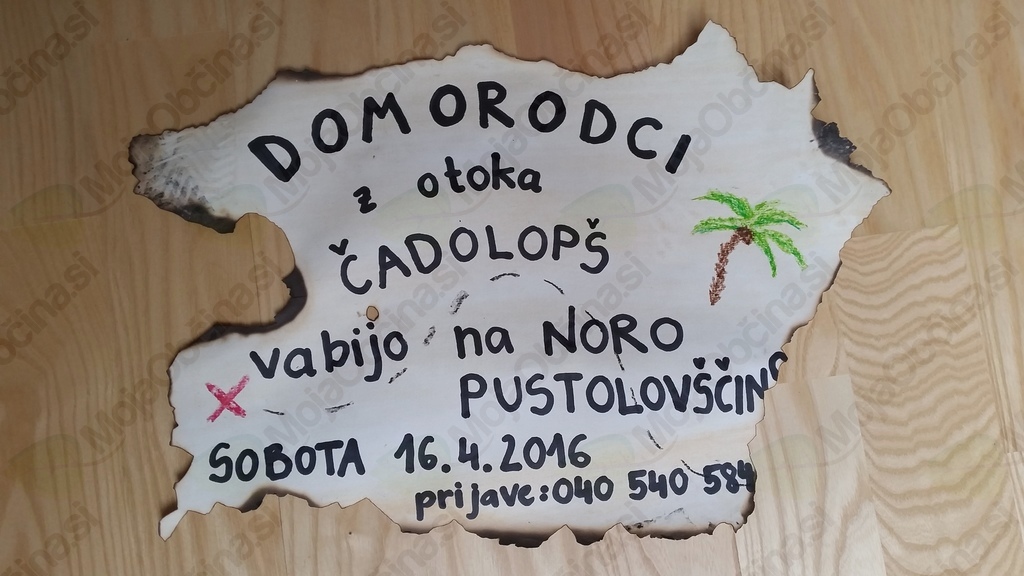 DOMORODCI
z otoka
ČADOLOPŠ
vabijo na NORO
PUSTOLOVŠČINO
SOBOTA 16.4.2016
prijave: 040 540 584
MojaObčina.si